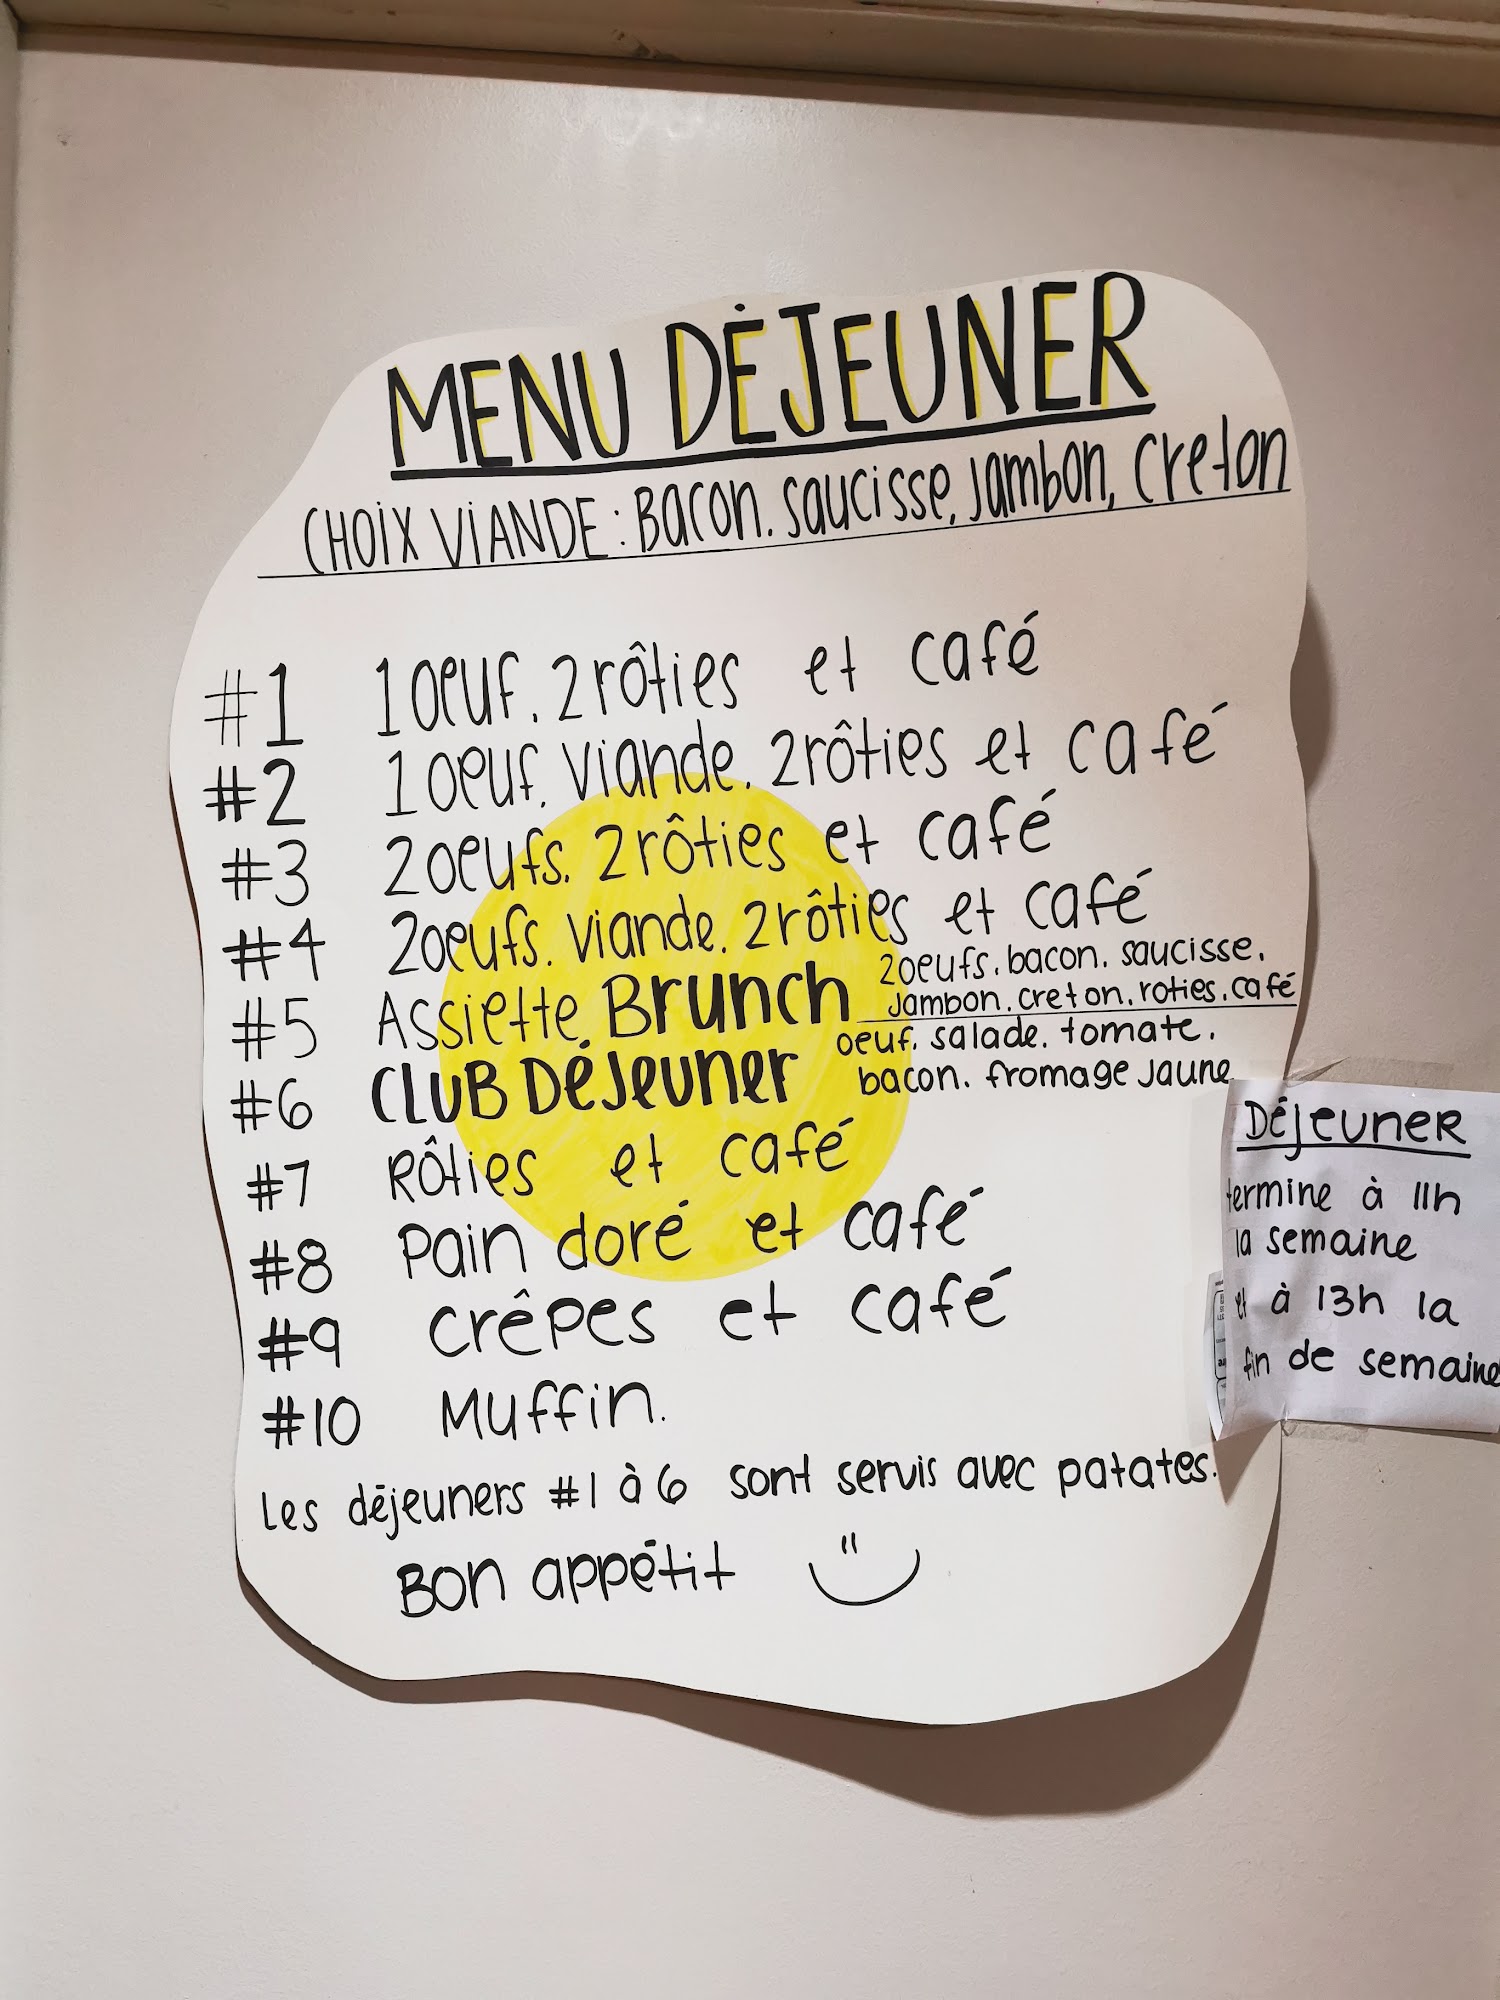 MENU DÉJEUNER
CHOIX VIANDE: Bacon. saucisse, Jambon, creton
#1 1 oeuf. 2 rôties et café
#2 1 oeuf. viande. 2 rôties et café
#3 2 oeufs. 2 rôties et café
#4 2 oeufs. viande. 2 rôties et café
#5 Assiette Brunch 2 oeufs. bacon. saucisse.
Jambon. creton. roties. café
#6 CLUB DÉJeuner oeuf. salade. tomate.
bacon. fromage Jaune
#7 Rôties et café
#8 Pain doré et café
#9 crêpes et café
#10 Muffin.
Les déjeuners #1 à 6 sont servis avec patates.
Bon appétit
DÉjeuner
termine à 11h
la semaine
et à 13h la
fin de semaine